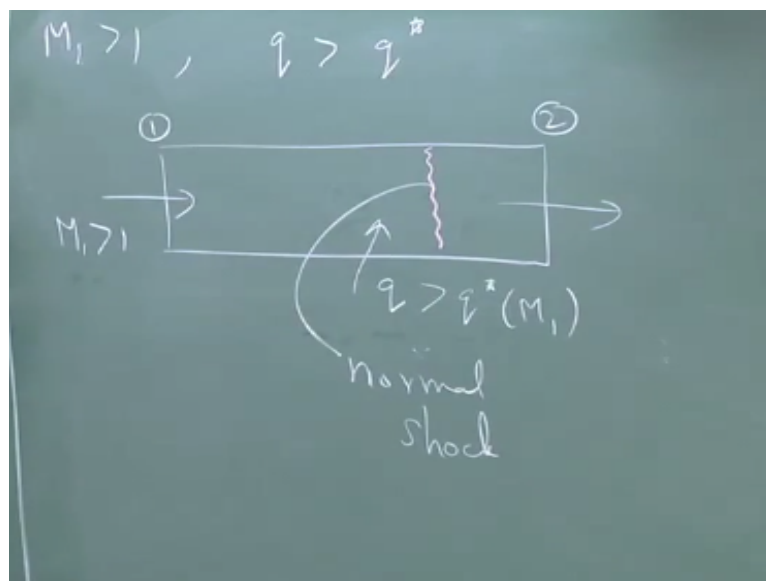 M₁ > 1 , q > q*
① ②
M₁ > 1
q > q*(M₁)
normal
shock